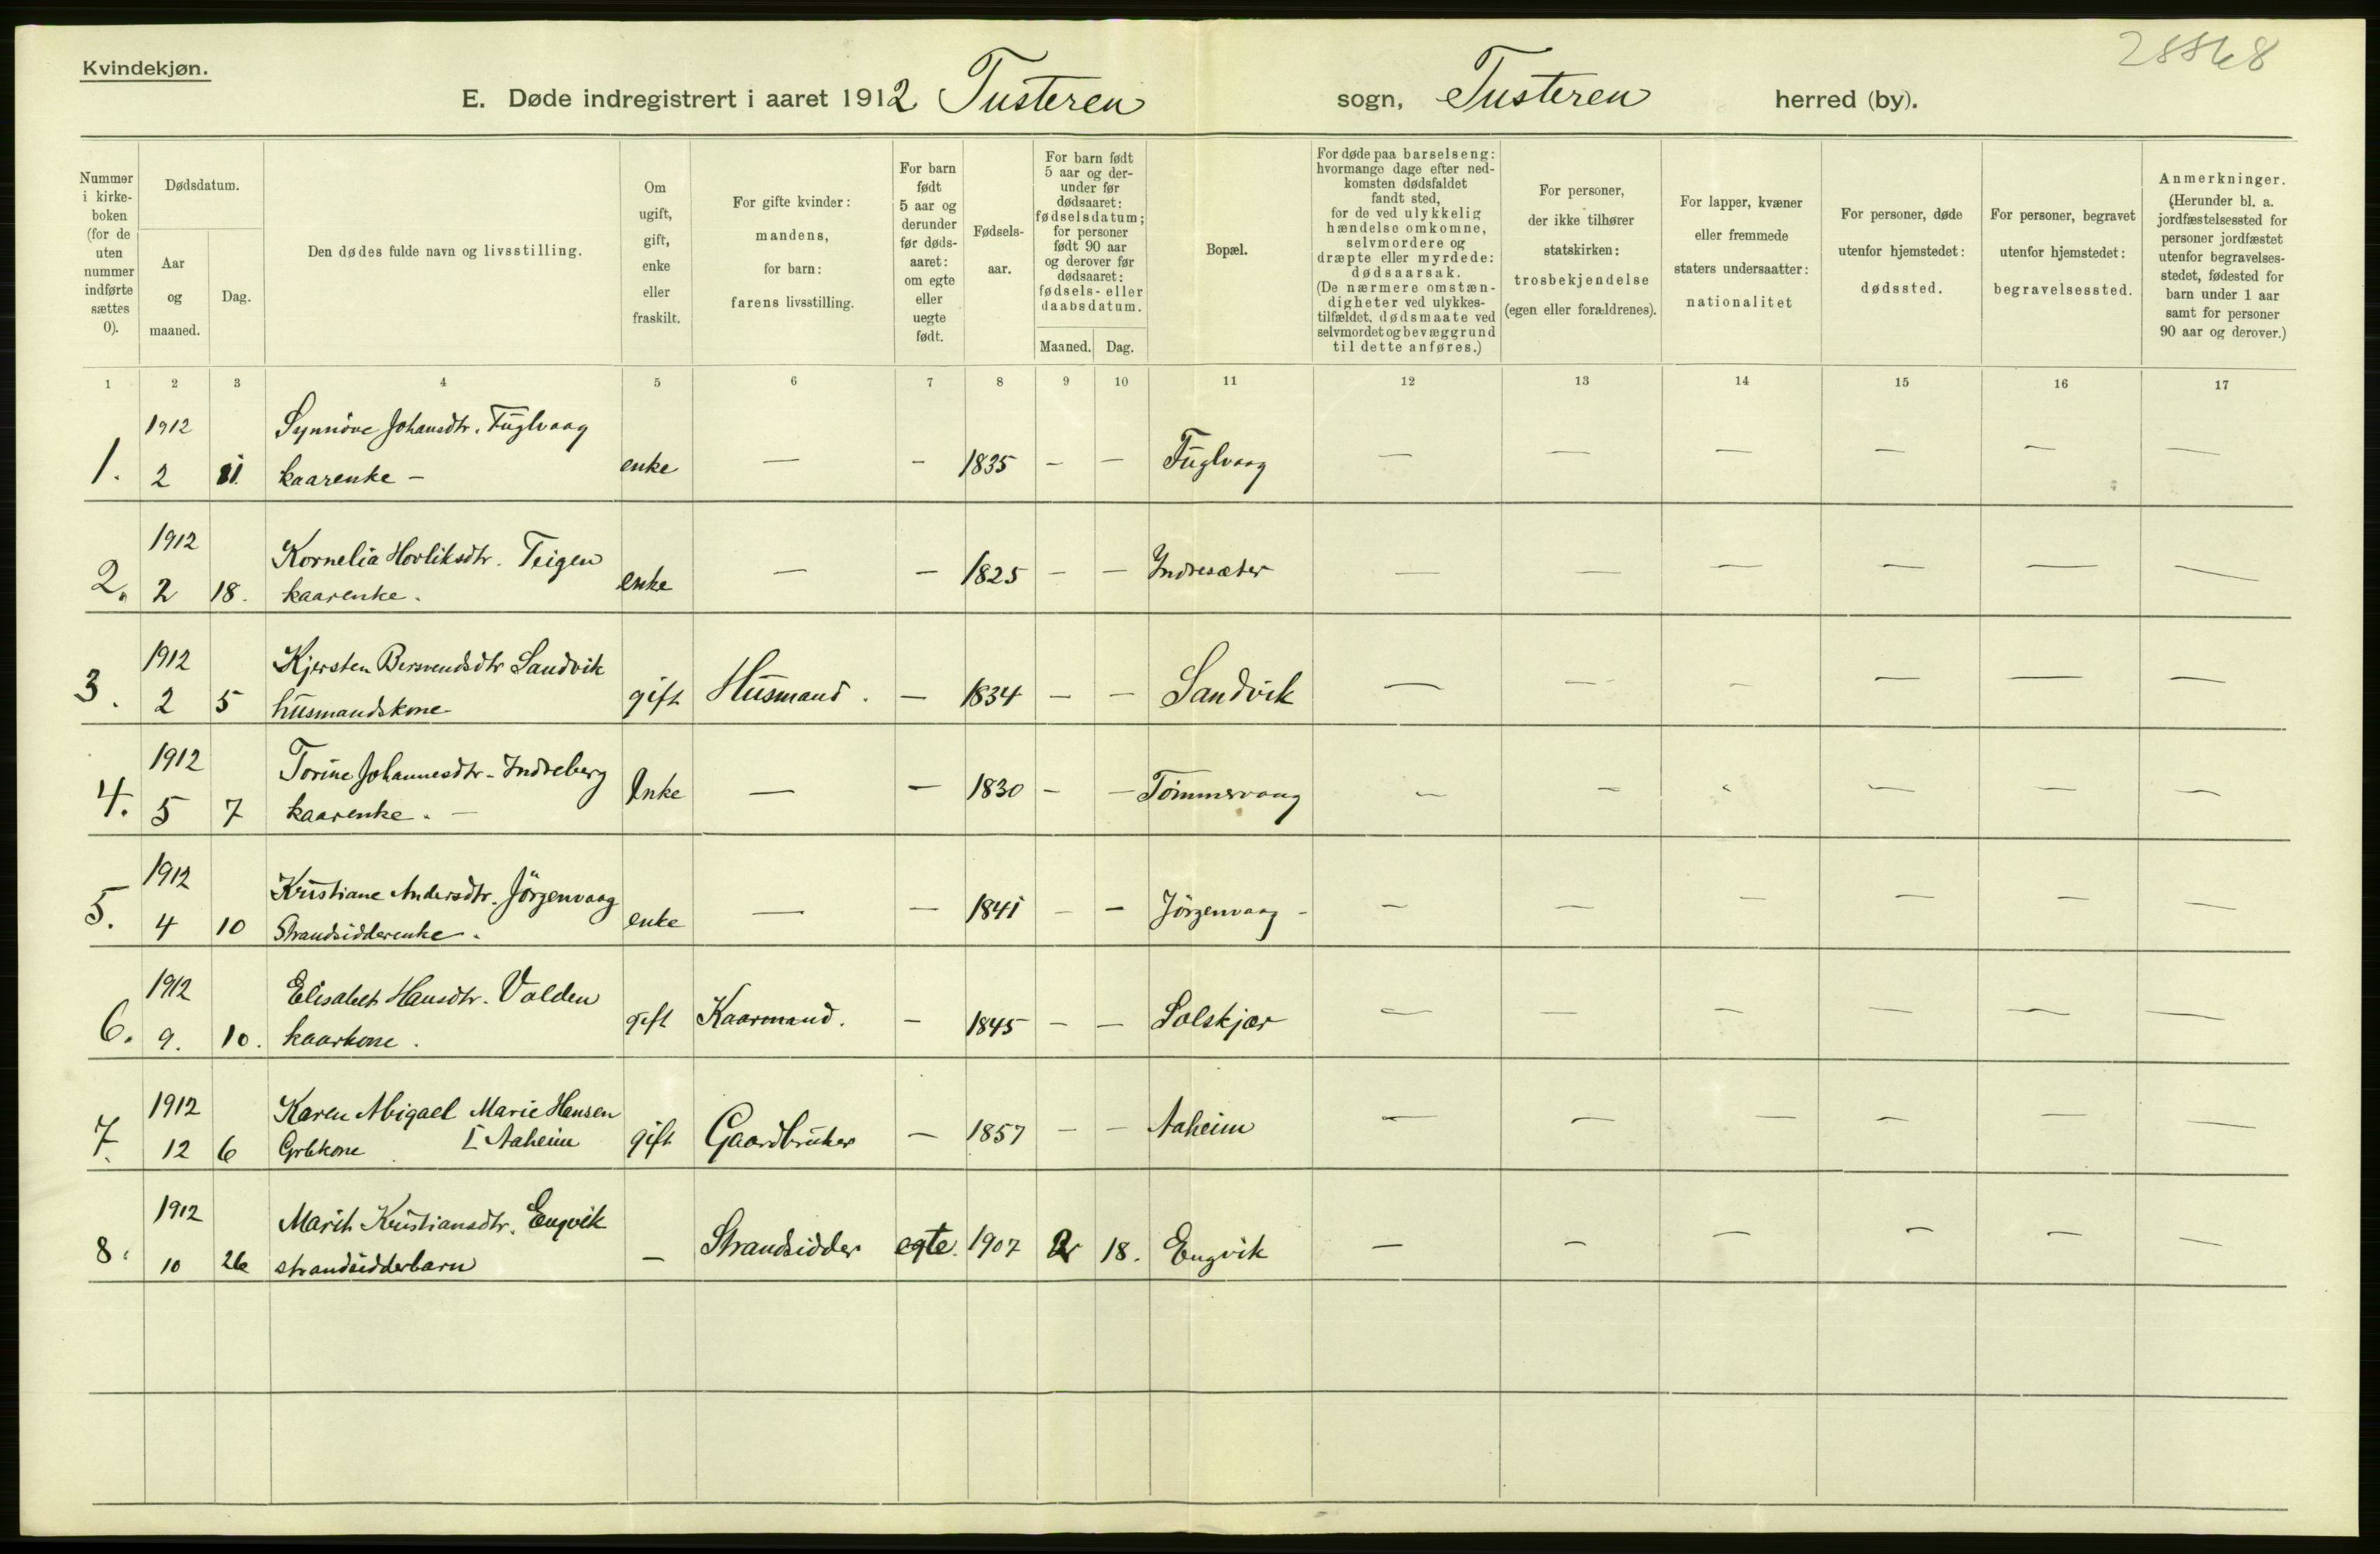 Kvindekjøn.
28868
E. Døde indregistrert i aaret 1912 Tusteren sogn, Tusteren herred (by).
Nummer i kirke-boken (for de uten nummer indførte sættes 0).
Dødsdatum.
Aar og maaned.
Dag.
Den dødes fulde navn og livsstilling.
Om ugift, gift, enke eller fraskilt.
For gifte kvinder: mandens, for barn: farens livsstilling.
For barn født 5 aar og derunder før døds-aaret: om egte eller uegte født.
Fødsels-aar.
For barn født 5 aar og der-under før dødsaaret: fødselsdatum; for personer født 90 aar og derover før dødsaaret: fødsels- eller daabsdatum.
Maaned. Dag.
Bopæl.
For døde paa barselseng: hvormange dage efter ned-komsten dødsfaldet fandt sted, for de ved ulykkelig hændelse omkomne, selvmordere og dræpte eller myrdede: dødsaarsak. (De nærmere omstæn-digheter ved ulykkes-tilfældet, dødsmaate ved selvmordet og bevæggrund til dette anføres.)
For personer, der ikke tilhører statskirken: trosbekjendelse (egen eller forældrenes).
For lapper, kvæner eller fremmede staters undersaatter: nationalitet
For personer, døde utenfor hjemstedet: dødssted.
For personer, begravet utenfor hjemstedet: begravelsessted.
Anmerkninger. (Herunder bl. a. jordfæstelsessted for personer jordfæstet utenfor begravelses-stedet, fødested for barn under 1 aar samt for personer 90 aar og derover.)
1 2 3 4 5 6 7 8 9 10 11 12 13 14 15 16 17
1912 Synnöve Johansdtr. Fuglvaag
1. 2 kaarenke - enke — - 1835 - - Fuglvaag — — — — — —
1912 Kornelia Hovliksdtr. Teigen
2. 2 18. kaarenke. enke — - 1825 - - Indresæter — — — — — —
1912 Kjersten Bersvendsdtr Sandvik
3. 2 5 husmandskone gift Husmand. - 1834 - - Sandvik — — — — — —
1912 Torine Johannesdtr - Indreberg
4. 5 7 kaarenke. — Enke — - 1830 - - Tömmervaag — — — — — —
1912 Kristiane Andersdtr. Jörgenvaag
5. 4 10 Strandsidderenke. enke — - 1841 - - Jörgenvaag - — — — — — —
1912 Elisabet Hansdtr. Valden
6. 9. 10. kaarkone. gift Kaarmand. - 1845 - - Solskjær — — — — — —
1912 Karen Abigael Marie Hansen
7. 12 6 Grbkone Aaheim gift Gaardbruker - 1857 - - Aaheim — — — — — —
1912 Marit Kristiansdtr. Engvik
8. 10 26 strandsidderbarn - Strandsidder egte. 1907 18. Engvik — — — — — —